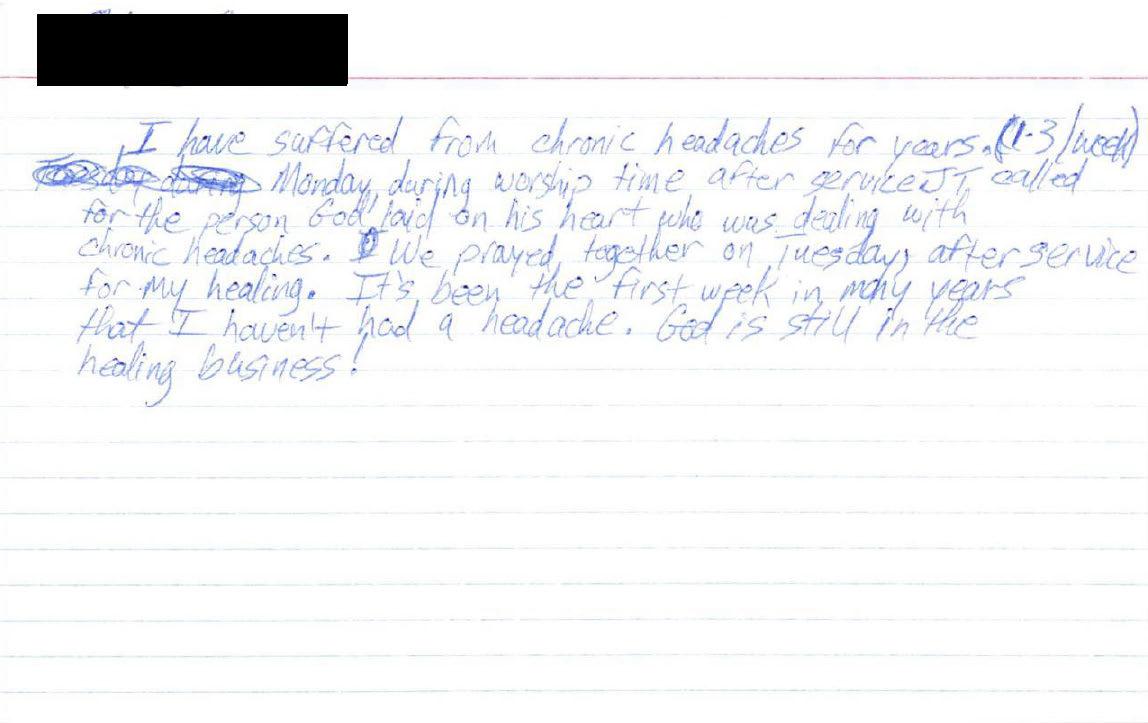 I have suffered from chronic headaches for years. (1-3/week)
Monday, during worship time after service JT, called
for the person God laid on his heart who was dealing with
chronic headaches. We prayed together on Tuesday, after service
for my healing. It's been the first week in many years
that I haven't had a headache. God is still in the
healing business!